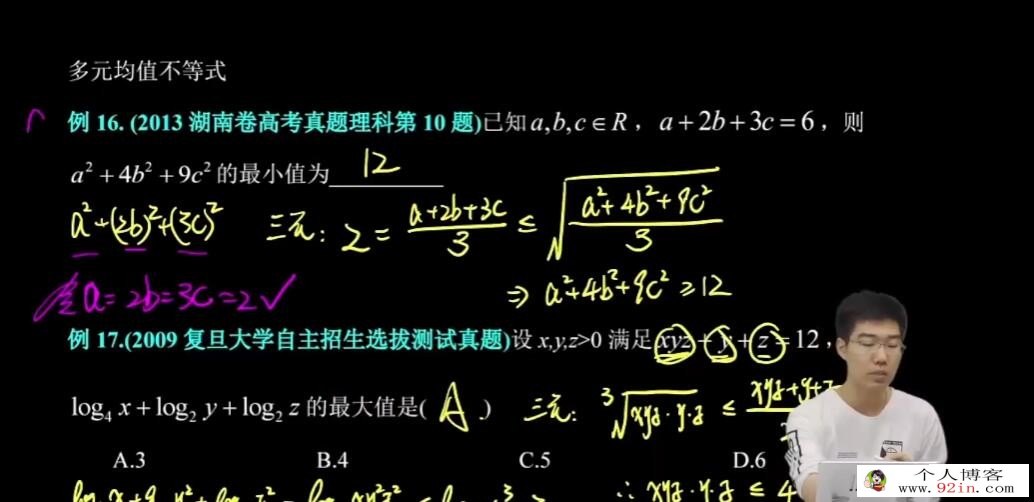 多元均值不等式
例 16. (2013 湖南卷高考真题理科第 10 题)已知 a,b,c∈R，a+2b+3c=6，则
a²+4b²+9c² 的最小值为 12
a²+(2b)²+(3c)² 三元: 2 = (a+2b+3c)/3 ≤ √((a²+4b²+9c²)/3)
⇒ a²+4b²+9c² ≥ 12
a=2b=3c=2 ✓
例 17.(2009 复旦大学自主招生选拔测试真题)设 x,y,z>0 满足 xyz+y+z=12，
log₄ x+log₂ y+log₂ z 的最大值是( A )
三元: ³√(xyz·y·z) ≤ xyz+y+z
A.3 B.4 C.5 D.6
∴ xyz·y·z ≤ 4
个人博客
www.92in.com